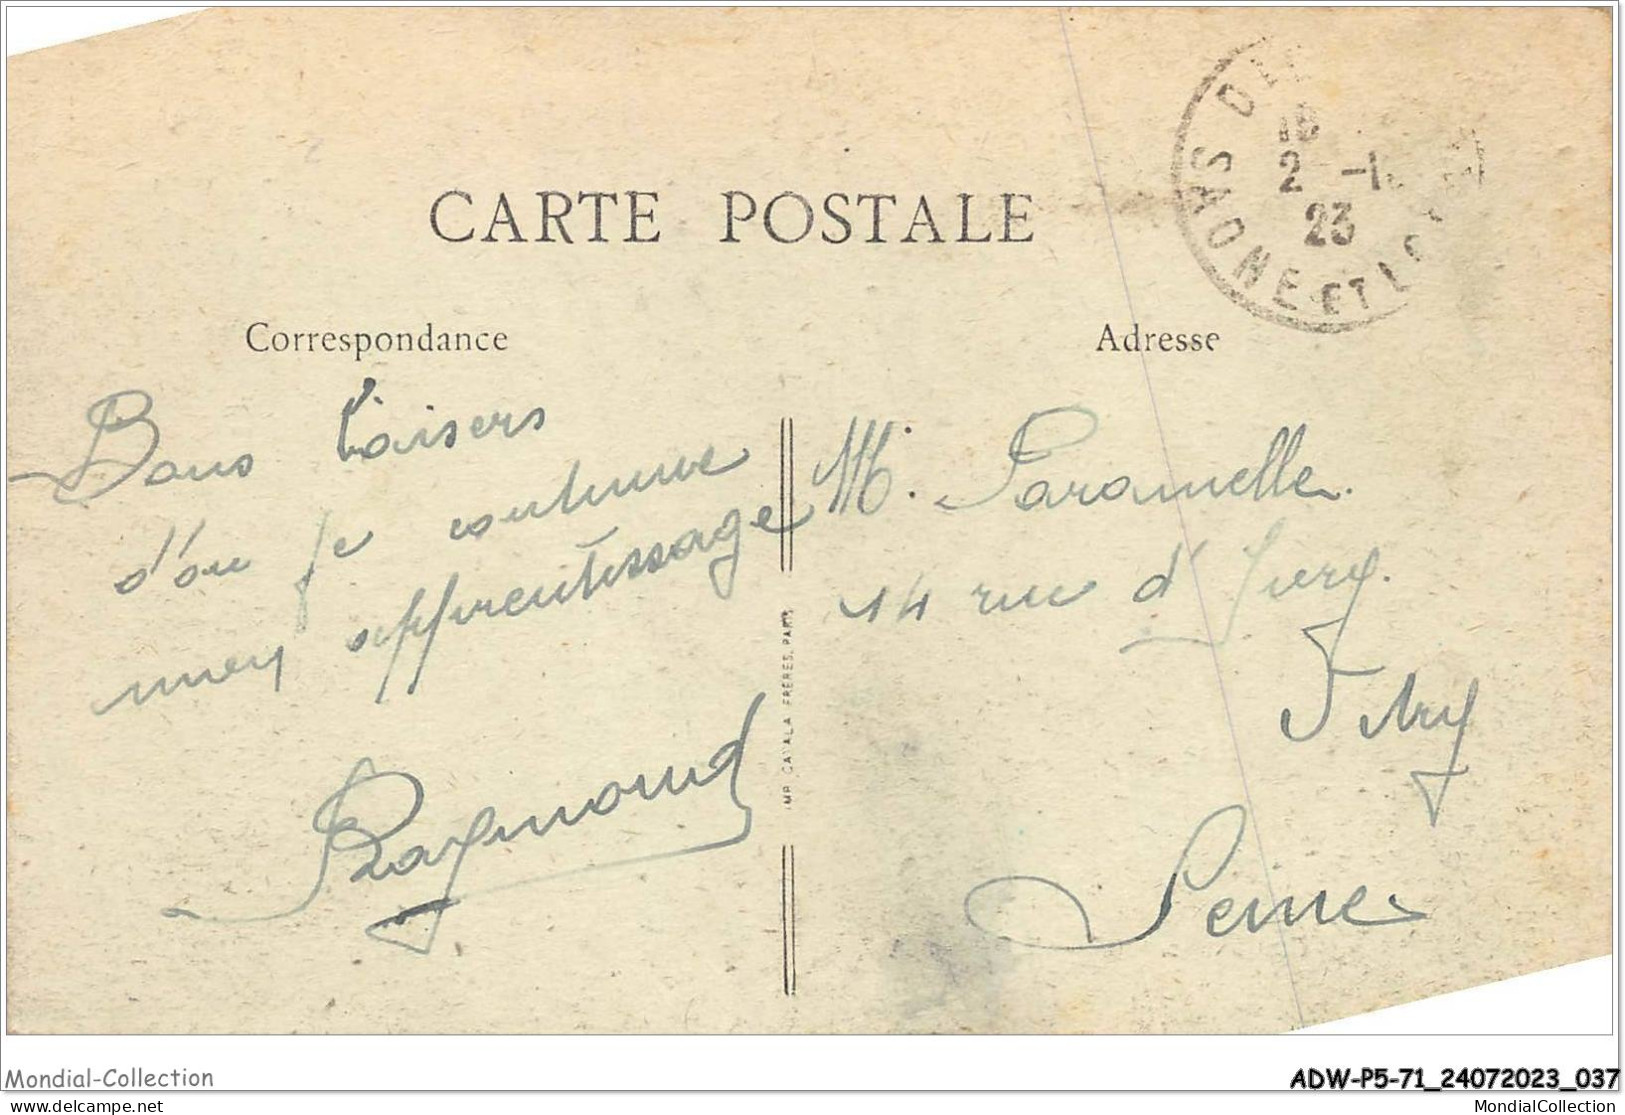 CARTE POSTALE
Correspondance
Bons baisers
d'ou je continue
mon apprentissage
Raymond
IMP. CATALA FRERES. PARIS
2 -1
23
SAONE ET LOIRE
Adresse
M. Paramelle.
14 rue d'Ivry.
Vitry
Seine
Mondial-Collection
ADW-P5-71_24072023_037
www.delcampe.net
MondialCollection